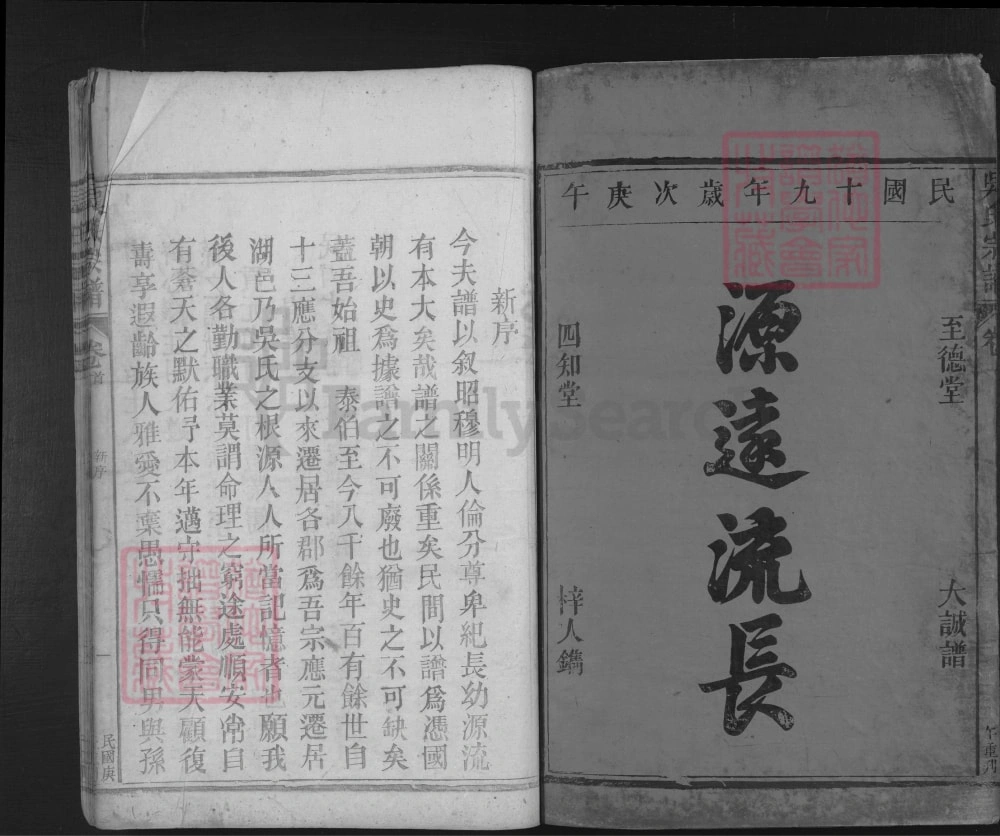 民國十九年歲次庚午
至德堂
大誠譜
源遠流長
四知堂
梓人鐫
新序
今夫譜以叙昭穆明人倫分尊卑紀長幼源流
有本大矣哉譜之關係重矣民間以譜爲憑國
朝以史爲據譜之不可廢也猶史之不可缺矣
蓋吾始祖 泰伯至今八千餘年百有餘世自
十三應分支以來遷居各郡爲吾宗應元遷居
湖邑乃吳氏之根源人人所當記憶者也願我
後人各勤職業莫謂命理之窮途處順安常自
有蒼天之默佑予本年邁守拙無能蒙天顧復
壽享遐齡族人雅愛不棄愚懦只得同男與孫
民國庚
午重刊
吳氏宗譜
卷
新序
卷首
一
FamilySearch